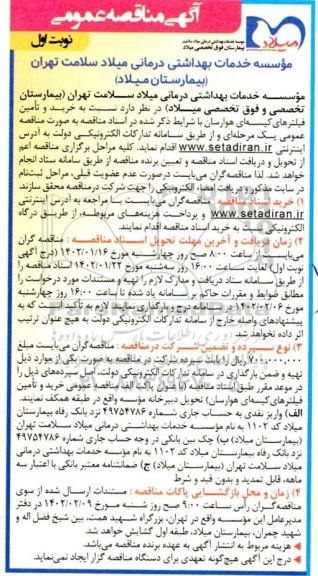 آگهی مناقصه عمومی
نوبت اول
میلاد
موسسه خدمات بهداشتی درمانی میلاد سلامت تهران
بیمارستان فوق تخصصی میلاد
مؤسسه خدمات بهداشتی درمانی میلاد سلامت تهران
(بیمارستان میلاد)
مؤسسه خدمات بهداشتی درمانی میلاد سلامت تهران (بیمارستان
تخصصی و فوق تخصصی میلاد) در نظر دارد نسبت به خرید و تأمین
فیلترهای کیسه‌ای هوارسان با شرایط ذکر شده در اسناد مناقصه به صورت مناقصه
عمومی یک مرحله‌ای و از طریق سامانه تدارکات الکترونیکی دولت به آدرس
اینترنتی www.setadiran.ir اقدام نماید. کلیه مراحل برگزاری مناقصه اعم
از تحویل و دریافت اسناد مناقصه و تعیین برنده مناقصه از طریق سامانه ستاد انجام
خواهد شد. لذا مناقصه‌گران می‌بایست درصورت عدم عضویت قبلی، مراحل ثبت‌نام
در سایت مذکور و دریافت امضاء الکترونیکی را جهت شرکت درمناقصه محقق سازند.
۱) خرید اسناد مناقصه: مناقصه‌گران می‌بایست با مراجعه به آدرس اینترنتی
www.setadiran.ir و پرداخت هزینه‌های مربوطه، از طریق درگاه
الکترونیکی نسبت به خرید اسناد مناقصه اقدام نمایند.
۲) زمان دریافت و آخرین مهلت تحویل اسناد مناقصه: مناقصه گران
می‌بایست از ساعت ۸:۰۰ صبح روز چهارشنبه مورخ ۱۴۰۲/۰۱/۱۶ (درج آگهی
نوبت اول) لغایت ساعت ۱۶:۰۰ روز سه‌شنبه مورخ ۱۴۰۲/۰۱/۲۲ اسناد مناقصه را
از طریق سامانه ستاد دریافت و مدارک لازم را تهیه و مستندات مورد درخواست را
مطابق ضوابط و مقررات حاکم بر سامانه یاد شده تا ساعت ۱۶:۰۰ روز چهارشنبه
مورخ ۱۴۰۲/۰۲/۰۶ در سامانه مزبور بارگذاری نمایند. لازم به تأکید است که به
پیشنهادهای واصله خارج از سامانه تدارکات الکترونیکی دولت به هیچ عنوان ترتیب
اثر داده نخواهد شد.
۳) نوع سپرده و تضمین شرکت درمناقصه: مناقصه گران می‌بایست مبلغ
ریال را بابت سپرده شرکت در مناقصه به صورت یکی از موارد ذیل
تهیه و ضمن بارگذاری در سامانه تدارکات الکترونیکی دولت، اصل سپرده‌های ذیل را
در موعد مقرر طبق اسناد مناقصه با قید نام پاکت الف (مناقصه عمومی خرید و تأمین
فیلترهای کیسه‌ای هوارسان) تحویل دبیرخانه مؤسسه واقع در طبقه همکف نمایند.
الف) واریز نقدی به حساب جاری شماره ۴۹۷۵۴۷۸۶ نزد بانک رفاه بیمارستان
میلاد کد ۱۱۰۲ به نام مؤسسه خدمات بهداشتی درمانی میلاد سلامت تهران
(بیمارستان میلاد) ب) چک بین بانکی در وجه حساب جاری شماره ۴۹۷۵۴۷۸۶
نزد بانک رفاه بیمارستان میلاد کد ۱۱۰۲ به نام مؤسسه خدمات بهداشتی درمانی
میلاد سلامت تهران (بیمارستان میلاد) ج) ضمانتنامه معتبر بانکی با اعتبار سه
ماهه، قابل تمدید و بدون قید و شرط
۴) زمان و محل بازگشایی پاکات مناقصه: مستندات ارسال شده از سوی
مناقصه‌گران رأس ساعت ۹:۰۰ صبح روز شنبه مورخ ۱۴۰۲/۰۲/۰۹ در دفتر
مدیرعامل این مؤسسه واقع در تهران، بزرگراه شهید همت، بین شیخ فضل اله و
شهید چمران، بیمارستان میلاد، طبقه اول گشایش خواهد شد.
هزینه مربوط به انتشار آگهی به عهده برنده مناقصه می‌باشد.
درج این آگهی هیچ‌گونه تعهدی برای دستگاه مناقصه گزار ایجاد نمی‌نماید.